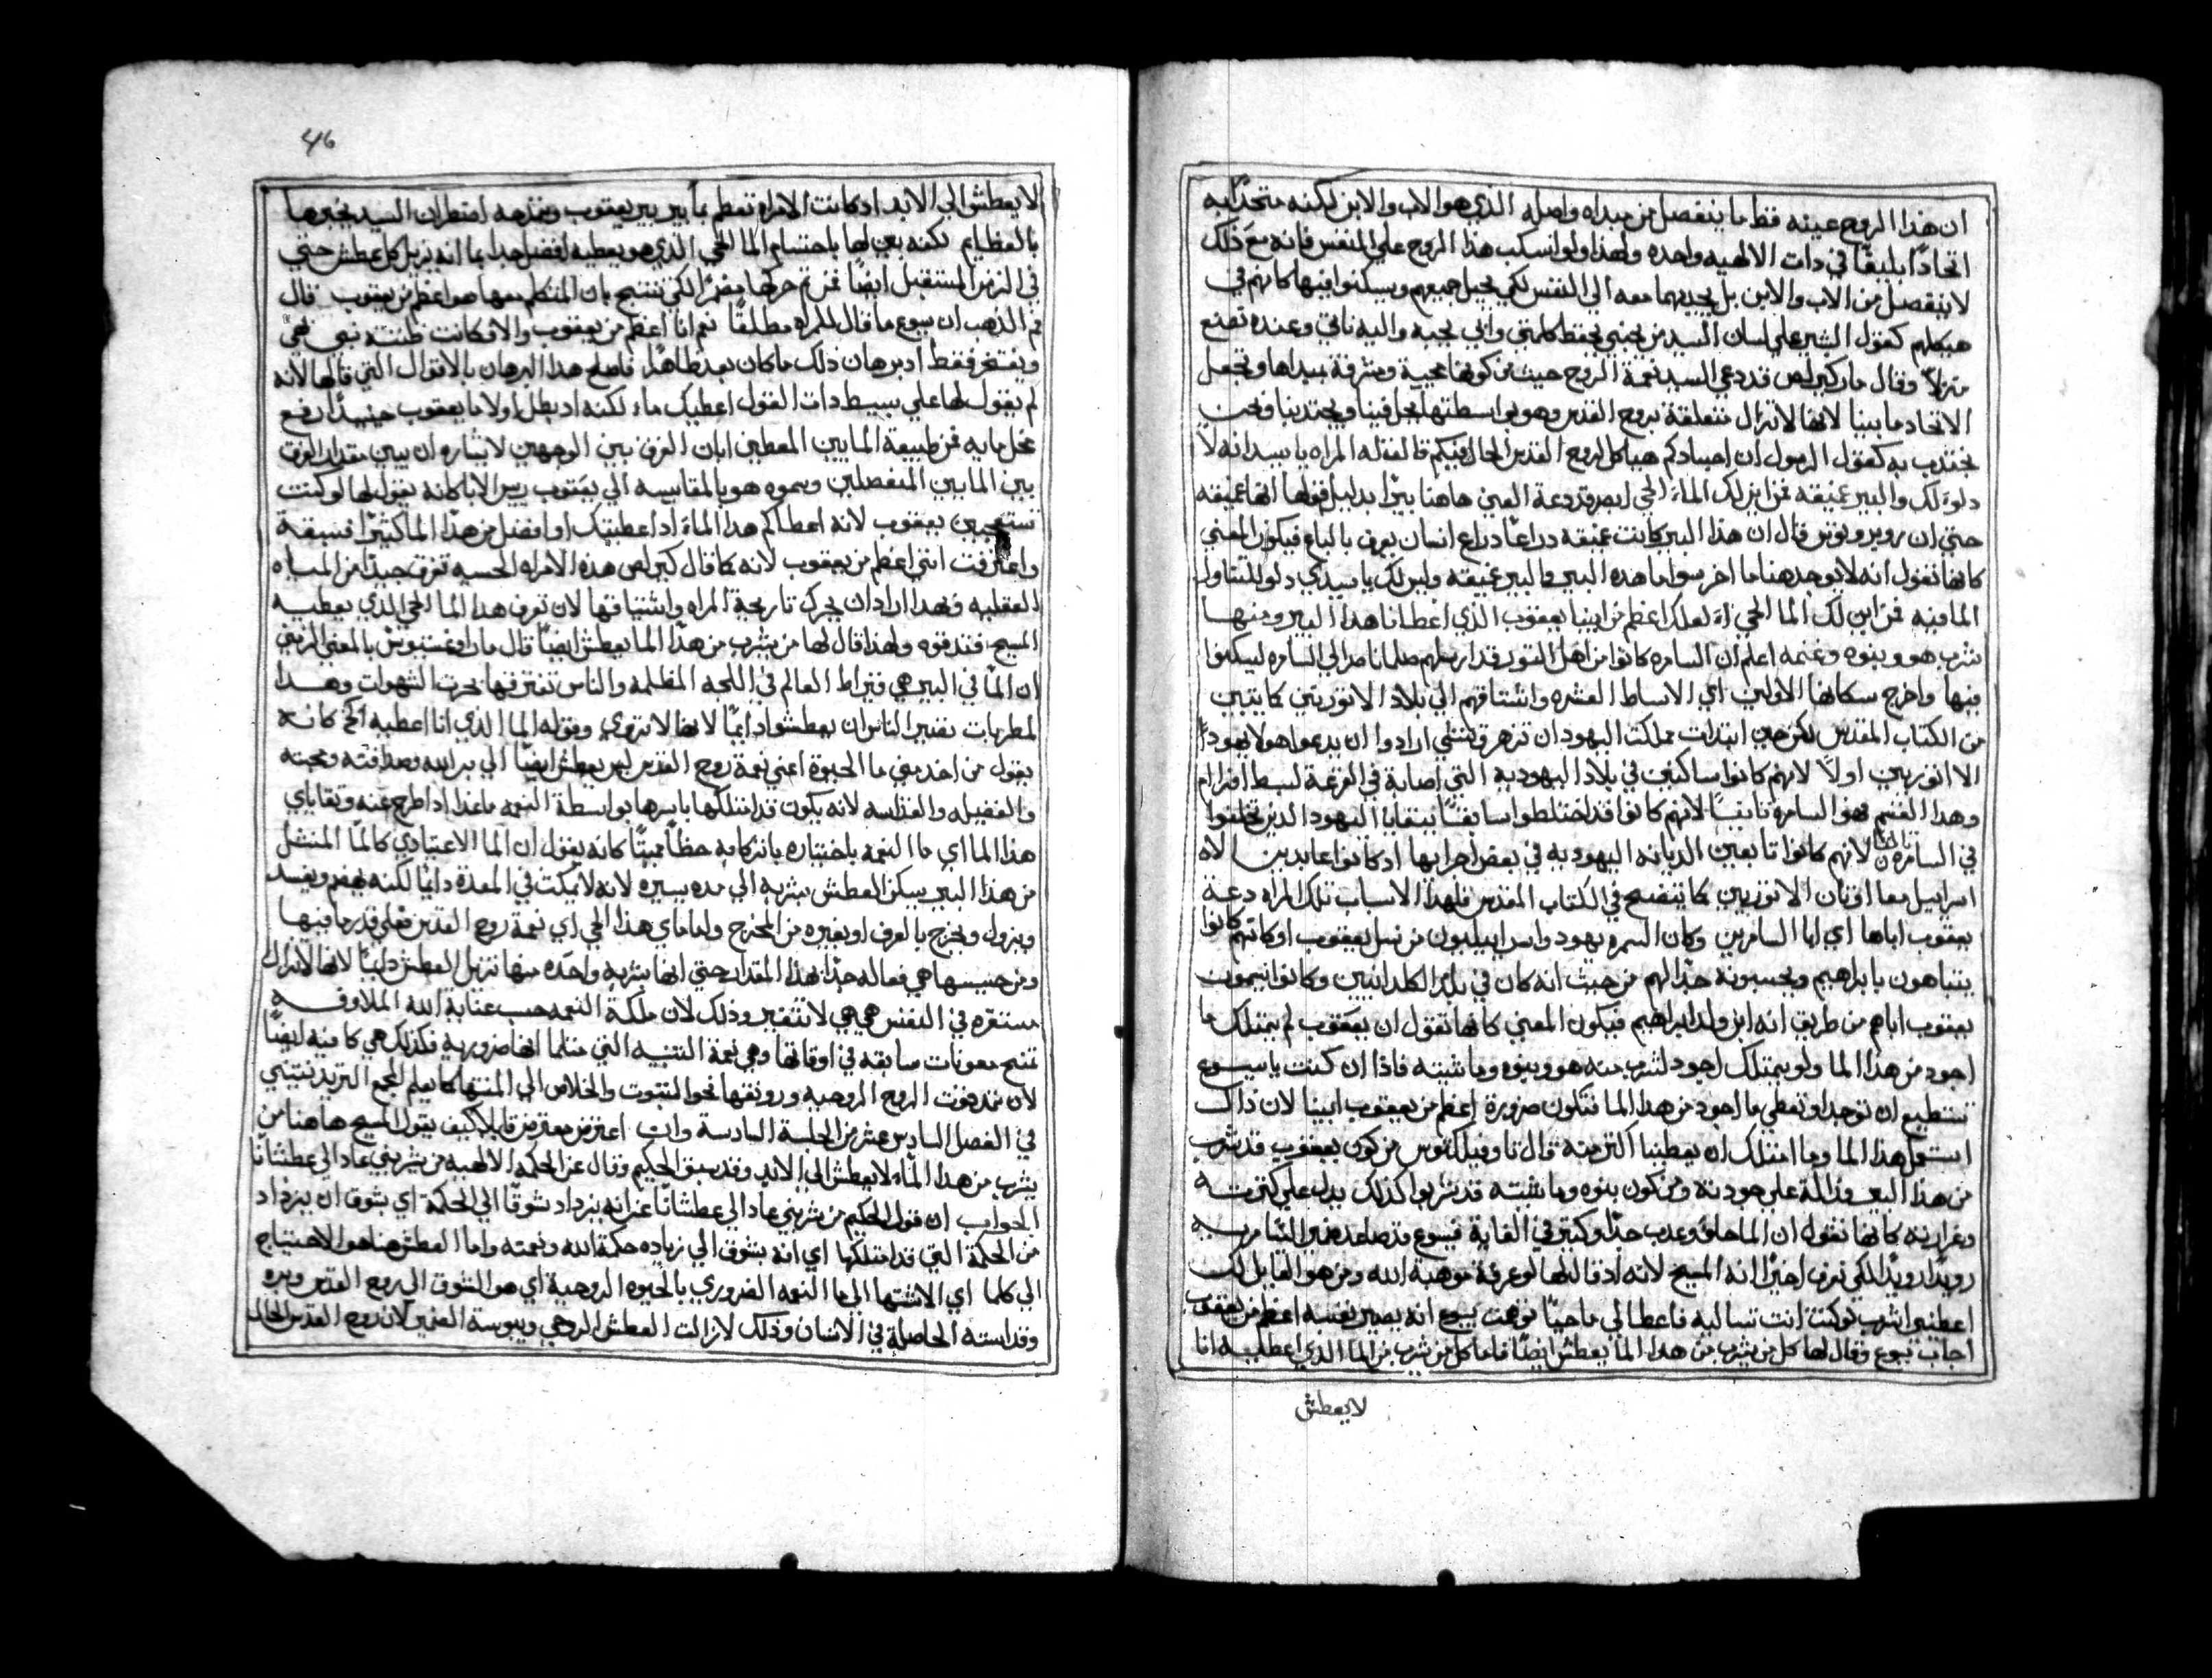 ان هذا الروح عينه فقط ما ينفصل من مبداه واصله الذي هو الاب والابن لكنه متحدًا به
اتحادًا بليقًا في ذات الالهيه واحده ولهذا ولو انسكب هذا الروح علي النفس فانه مع ذلك
لا ينفصل من الاب والابن بل يجدبهما معه الي النفس لكي يحل جميعهم ويسكنوا فيها كانهم في
هيكلهم كقول البشير علي لسان السيد من يحبني يحفظ كلمتي وابي يحبه واليه ناتي وعنده نصنع
منزلاً وقال مار كيرلص قد دعي السيد نعمة الروح حيث من كونها محيية ومشرقة بمبداها وتجعل
الاتحاد ما بيننا لانها لا تزال متعلقة بروح القدس وهو بواسطتها يحل فينا ويجتدبنا ونحن
نجتدب به كقول الرسول ان اجسادكم هياكل لروح القدس الحال فيكم قالت له المراه يا سيد انه لا
دلوا لك والبير عميقه فمن اين لك الماء الحي انه قد دعة العين هاهنا بيرًا بدليل قولها انها عميقه
حتي ان بروبرونوتس قال ان هذا البير كانت عميقه دراعًا دراع انسان يعرف بالباع فيكون المعني
كانها تقول انه لا يوجد هنا ما اخر سوا ما هده البير والبير عميقه وليس لك يا سيدي دلو لتتناول
الما منه فمن اين لك الما الحي العلك اعظم من ابينا يعقوب الذي اعطانا هدا البير ومنها
شرب هو وبنوه وغنمه اعلم ان السامره كانوا من اهل التور قد ارسلهم صلمانا صر الي السامره ليسكنوا
فيها واخرج سكانها الاولين اي الاسباط العشره واشتاقهم الي بلاد الاتوريين كما يتبين
من الكتاب المقدس لكن حين ابتدات مملكت اليهود ان تزهر وتنتشي ارادوا ان يدعوا هولا يهودًا
الا اتوريين اولاً لانهم كانوا ساكنين في بلاد اليهوديه التي اصابة في القرعة لسبط افرام
وهدا القسم فهو السامرة تانيًا لانهم كانوا قد اختلطوا سابقًا ببقايا اليهود الدين تخلفوا
في السامره ثالثا لانهم كانوا تابعين الديانه اليهوديه في بعض اجرايها اد كانوا عابدين الاه
اسراييل معا اوتان الاتوريين كما يتضح في الكتاب المقدس فلهدا الاسباب تلك المراه دعة
يعقوب اباها اي ابا السامريين وكان السمره يهود واسراييليون من نسل يعقوب او كانهم كانوا
يتباهون بابراهيم ويحسبونه جدًا لهم من حيث انه كان في بلد الكلدانيين وكانوا يسمون
يعقوب اباهم من طريق انه ابن ولد ابراهيم فيكون المعني كانها تقول ان يعقوب لم يمتلك ما
اجود من هدا الما ولو يمتلك اجود لشرب منه هو وبنوه وماشيته فاذا ان كنت يا يسوع
تستطيع ان توجد او تعطي ما اجود من هدا الما فتكون ضرورة اعظم من يعقوب ابينا لان ذاك
استعمل هدا الما وما امتلك ان يعطينا اكتر منه قال تاوفيلكتوس من كون يعقوب قد شرب
من هدا البير فدلالة علي جودته ومن كون بنوه وماشيته قد شربوا كذلك يدل علي كترته
وغزارته كانها تقول ان الما حلو وعدب جدًا وكتير في الغاية فيسوع قد صاعد ضمير السامريه
رويدًا رويدًا لكي تعرف اخيرًا انه المسيح لانه اد قال لها لو عرفة موهبة الله ومن هو القايل لك
اعطيني اشرب لو كنت انت تساليه فاعطالي ماحيًا توهمت يسوع انه يصير نفسه اعظم من يعقوب
اجاب يسوع وقال لها كل من يشرب من هدا الما يعطش ايضًا فاما كل من شرب من الما الذي اعطيه انا
لا يعطش
46
لا يعطش الي الابد اد كانت الامراه تعظم ما بير بير يعقوب وتمدحه اضطر ان السيد يخبرها
بالعظايم لكنه بين لها باحتسام الما الحي الذي هو يعطيه افضل جدا بما انه يزيل كل عطش حتي
في الزمن المستقبل ايضًا فمن تم حركها مضمرًا لكي تنتج بان المتكلم معها هو اعظم من يعقوب قال
فم الذهب ان يسوع ما قال للمراه مطلقًا نعم انا اعظم من يعقوب والا فكانت ظنته نبي نفي
ويفتخر فقط اد برهان ذلك ما كان بعد ظاهرًا فاصلح هدا البرهان بالاقوال التي قالها لانه
لم يقول لها علي بسيط دات القول اعطيك ماء لكنه اد بطل اولا ما يعقوب حينيدًا رفع
محل مايه فمن طبيعة المايين المعطين ابان الفرق بين الوجهين لايثاره ان يبين مقدار الفرق
بين المايين المنفصلين وسموه هو بالمقايسه الي يعقوب رييس الابا كانه يقول لها لو كنت
تستعجبين يعقوب لانه اعطاكم هدا الماء اد اعطيتك او افضل من هدا الما كثيرًا فسبقة
واعترفت انني اعظم من يعقوب لانه كما قال كيرلص هده الامراه الحسيه تعرف جيدًا من المياه
العقليه فبهدا اراد ان يحرك تاريجة المراه واشتياقها لان تعرف هدا الما الحي الذي يعطيه
المسيح فتدقه ولهدا قال لها من يشرب من هدا الما يعطش ايضًا قال مار اوغستينوس بالمعني الرمزي
ان الما في البير هي قيراط العالم في اللجه المظلمه والناس تغترفها بجرت الشهوات وهدا
لمطربات تفتير الناس ان يعطشوا دايمًا لانها لا تروي وقوله الما الذي انا اعطيه الخ كانه
يقول من اخد مني ما الحيوة اعني نعمة روح القدس ليس يعطش ايضًا الي بر الله وصداقته ومحبته
والفضيله والقداسه لانه يكون قد امتلكها باسرها بواسطة النعمه ماعدا اد اطرح عنه وتقاياي
هدا الما اي ما النعمه باختياره بارتكابه خطاً مميتًا كانه يقول ان الما الاعتيادي كالما المنتشل
من هدا البير يسكن العطش بشربه الي مده يسيره لانه لا يمكت في المعدة دايمًا لكنه ينهضم ويفسد
ويزول ويخرج بالعرق او بغيره من المخرج واما ماي هدا الحي اي نعمة روح القدس فعلي قدر ما فيها
ومن جنسها هي فعاله جدًا بهذا المقدار حتي انها بشربه واحده منها تزيل العطش دايمًا لانها لا تزال
مستقره في النفس هي هي لا تتغير وذلك لان ملكة النعمه حسب عناية الله الملاوقه
تمنح معونات سابقه في اوقاتها وهي نعمة التتنيه التي متلما انها ضروريه فكذلك هي كافيه ايضًا
لان تمد قوت الروح الروحيه ورونقها نحو التتبوت والخلاص الي المنتها كما يعلم المجمع التريدنتيني
في الفصل السادس عشر من الجلسة السادسة وان اعترض معترض قايلاً كيف يقول المسيح هاهنا من
يشرب من هدا الماء لا يعطش الي الابد وقد سبق الحكيم وقال عن الحكمه الالهيه من شربني عاد الي عطشانًا
الجواب ان قول الحكيم من شربني عاد الي عطشانًا عن انه يزداد شوقًا الي الحكمة اي يشوق ان يزداد
من الحكمة التي قد امتلكها اي انه يشوق الي زياده حكمة الله ونعمته واما العطش هنا هو الاحتياج
الي كلما اي الاشتها الي ما النعمه الضروري بالحيوه الروحية اي هو الشوق الي روح القدس وبره
وقداسته الحاصلة في الانسان وذلك لازالت العطش الروحي ويبوسة الضمير لان روح القدس الحال